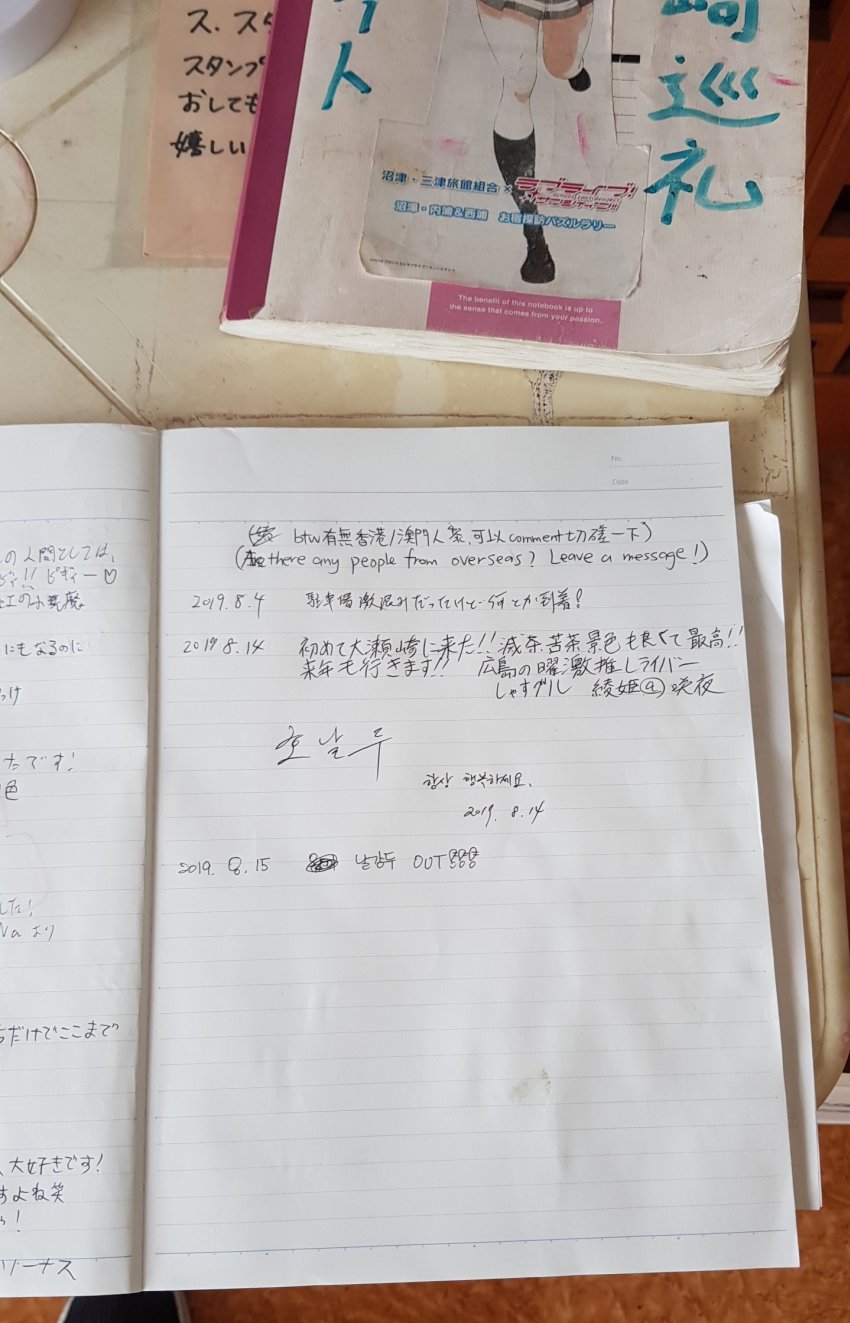 ス. ス
スタンプ
おしても
嬉しい
人
崎巡礼
沼津・三津旅館組合×ラブライブ!サンシャイン!!
沼津・内浦&西浦 お宿探訪パズルラリー
The benefit of this notebook is up to
the sense that comes from your passion.
No.
Date
の人間としては、
ピギィー♡
にもなるのに
っけ
たです!
色
した!
Na より
だけでここまで
大好きです!
すよね笑
!
リーナス
btw有無香港/澳門人 可以comment切磋一下)
(Are there any people from overseas? Leave a message!)
2019.8.4 駐車場激混みだったけど何とか到着!
2019.8.14 初めて大瀬崎に来た!!滅茶苦茶景色も良くて最高!!
来年も行きます!! 広島の曜激推しライバー
しゃすグル 綾姫@咲夜
호날두
항상 행복하세요.
2019. 8.14
2019. 8.15 날강두 OUT